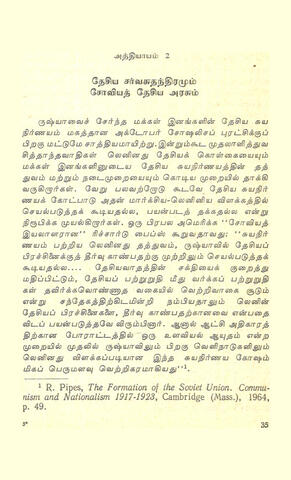 அத்தியாயம் 2
தேசிய சர்வசுதந்திரமும்
சோவியத் தேசிய அரசும்
ருஷ்யாவைச் சேர்ந்த மக்கள் இனங்களின் தேசிய சுய
நிர்ணயம் மகத்தான அக்டோபர் சோஷலிசப் புரட்சிக்குப்
பிறகு மட்டுமே சாத்தியமாயிற்று. இன்றும்கூட முதலாளித்துவ
சித்தாந்தவாதிகள் லெனினது தேசியக் கொள்கையையும்
மக்கள் இனங்களினுடைய தேசிய சுயநிர்ணயத்தின் தத்
துவம் மற்றும் நடைமுறையையும் கொடிய முறையில் தாக்கி
வருகிறார்கள். வேறு பலவற்றோடு கூடவே தேசிய சுயநிர்
ணயக் கோட்பாடு அதன் மார்க்சிய-லெனினிய விளக்கத்தில்
செயல்படுத்தக் கூடியதல்ல, பயன்படத் தக்கதல்ல என்று
நிரூபிக்க முயல்கிறார்கள். ஒரு பிரபல அமெரிக்க “சோவியத்
இயலாளரான” ரிச்சார்டு பைப்ஸ் கூறுவதாவது: “சுயநிர்
ணயம் பற்றிய லெனினது தத்துவம், ருஷ்யாவில் தேசியப்
பிரச்சினைக்குத் தீர்வு காண்பதற்கு முற்றிலும் செயல்படுத்தக்
கூடியதல்ல.... தேசியவாதத்தின் சக்தியைக் குறைத்து
மதிப்பிட்டும், தேசியப் பற்றுறுதி மீது வர்க்கப் பற்றுறுதி
கள் தவிர்க்கவொண்ணாத வகையில் வெற்றிவாகை சூடும்
என்று சந்தேகத்திற்கிடமின்றி நம்பியதாலும் லெனின்
தேசியப் பிரச்சினையை, தீர்வு காண்பதற்கானவை என்பதை
விடப் பயன்படுத்தவே விரும்பினார். ஆனால் ஆட்சி அதிகாரத்
திற்கான போராட்டத்தில் ஒரு உளவியல் ஆயுதம் என்ற
முறையில் முதலில் ருஷ்யாவிலும் பிறகு வெளிநாடுகளிலும்
லெனினது விளக்கப்படியான இந்த சுயநிர்ணய கோஷம்
மிகப் பெருமளவு வெற்றிகரமாகியது”¹.
¹ R. Pipes, The Formation of the Soviet Union. Commu-
nism and Nationalism 1917-1923, Cambridge (Mass.), 1964,
p. 49.
3* 35